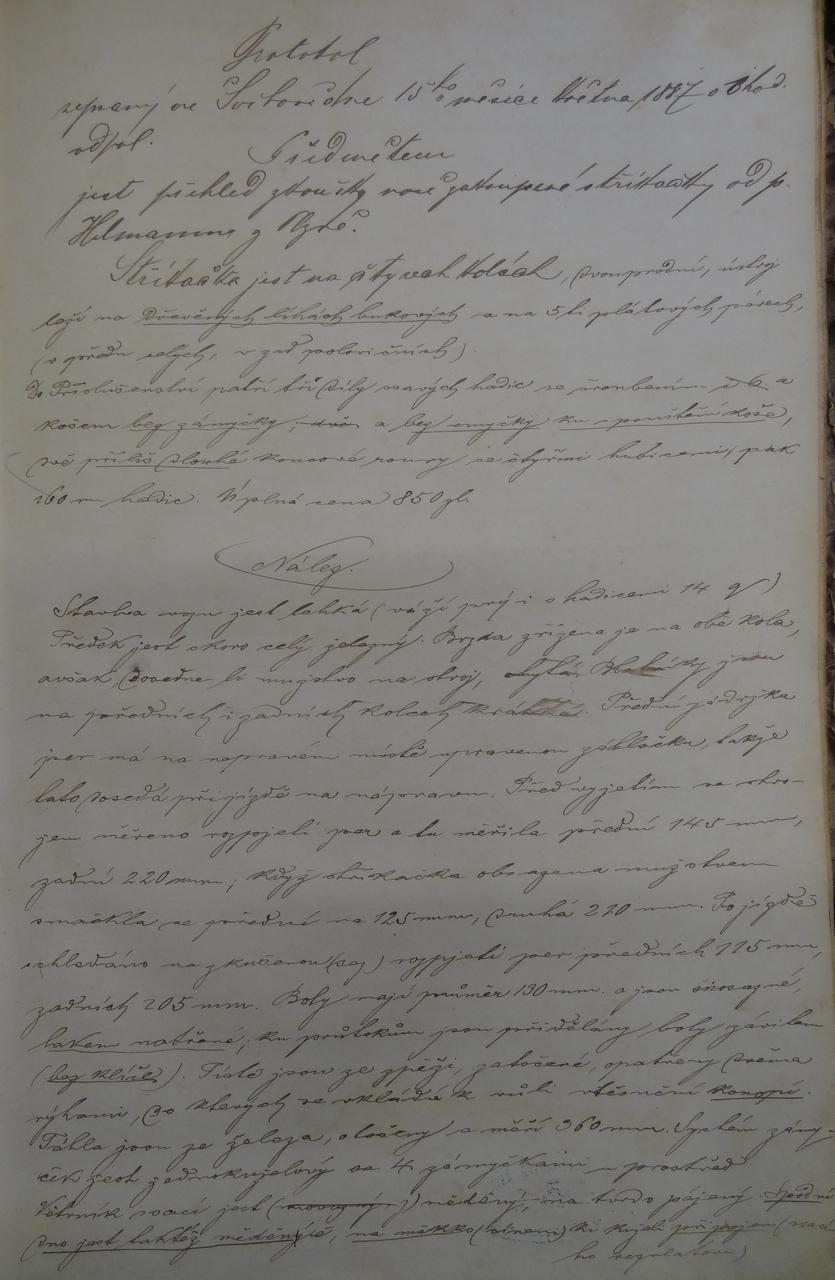 Protokol
sepsaný ve 15ho měsíce Května 1887 o hod.
odpol.
Předmětem
jest přehled zkoušky nově zakoupené stříkačky od p.
Hilmanna z
Stříkačka jest na čtyrech kolách, dvouproudní, ústrojí
leží na dřevěných líhách bukových a na 5ti plátových pérech,
(v předu celých, v zad polovičních).
Do Příslušenství patří tři díly ssavých hadic se šroubením a
košem bez zámyčky, a bez smyčky ku spouštění koše,
dvě příliš dlouhé koncové roury se čtyřmi hubicemi, pak
160 m hadic. Úplná cena 850 zl.
Nález.
Stavba vozu jest lehká (váží prý i s hadicemi 14 q)
Předek jest skoro celý železný. Brzda zřízena je na obě kola,
avšak, dosedne-li mužstvo na stroj, Blatníky jsou
na předních i zadních kolech krátké. Přední zdržka
per má na nápravěm místě upravenou záklačku, takže
tato dosedá při jízdě na nápravu. Před vyjetím se stro-
jem měřeno rozpjetí per a tu měřila přední 145 mm,
zadní 220 mm; když stříkačka obsazena mužstvem
smáčkla se přední na 125 mm, druhá 210 mm. Po jízdě
shledáno na zkušenou rozpjetí per předních 115 mm,
zadních 205 mm. Boty mají průměr 130 mm. a jsou
lakem natřené; ku průtokům jsou přidělány boty závitem
(bez klíče). Písté jsou ze zpěži, zatočené, opatřeny dvěma
rýhami, do kterých se vkládá k vůli utěsnění konopí.
Táhla jsou ze železa, otočeny a měří 360 mm. Systém zámy-
ček jest jednokuželový se 4 zámyčkami u prostřed
Větrník ssací jest měděný, na tvrdo pájený. Spodní
dno jest taktéž měděné, na měkko (cínem) ku kuželi připojen (ssací-
ho regulatoru)